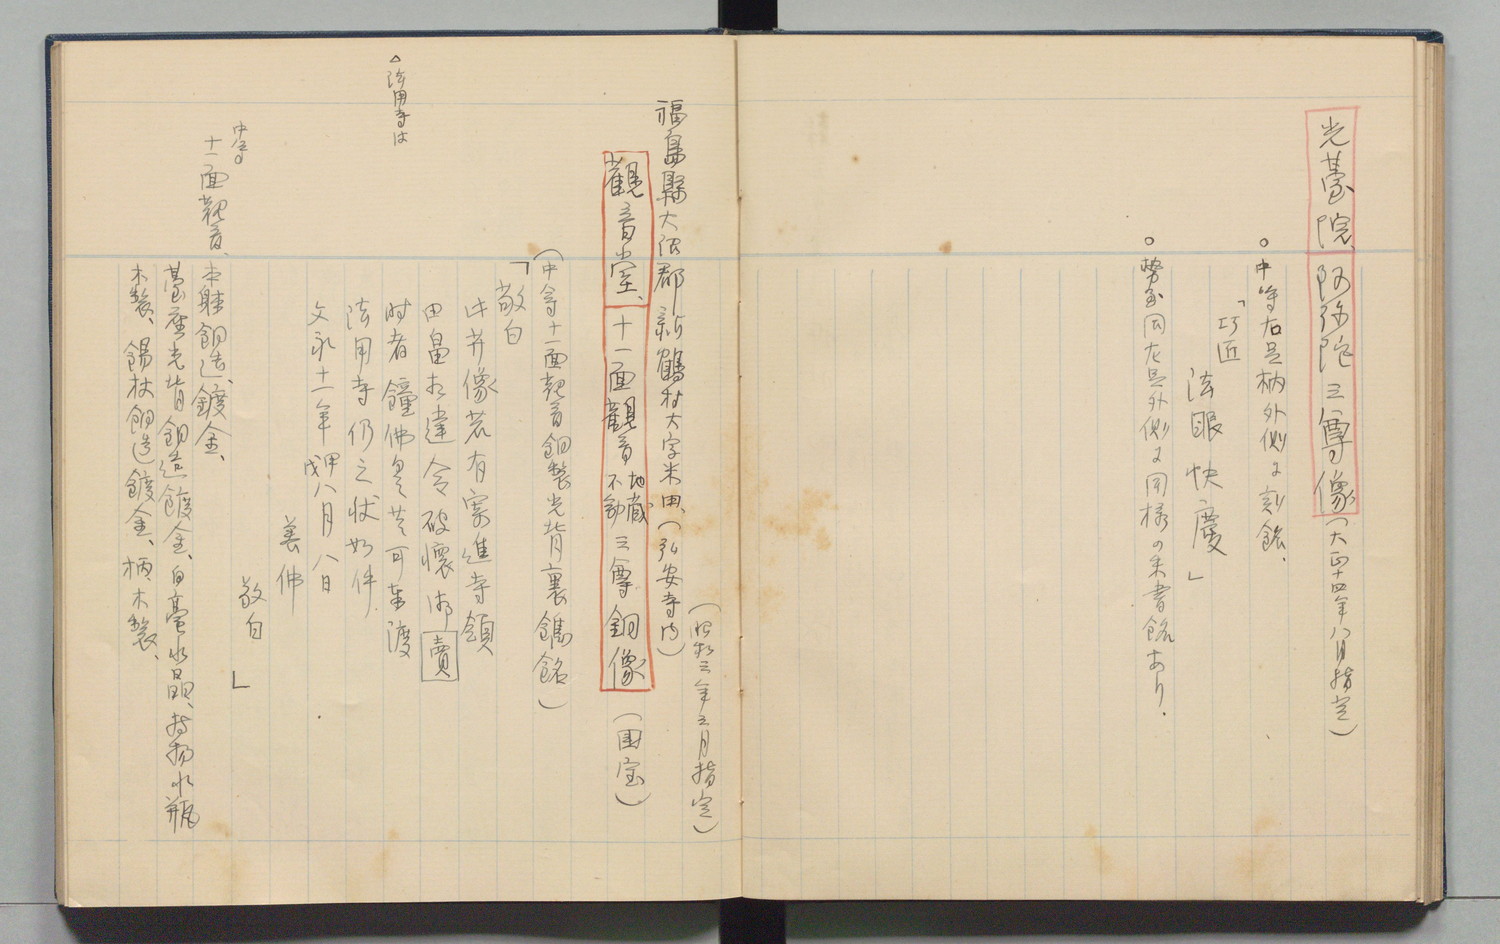 光臺院、阿弥陀三尊像(大正十四年八月指定)
○中尊右足柄外側に刻銘、
「巧匠
法眼快慶」
○勢至同左足外側に同様の朱書銘あり.
(昭和三年三月指定)
福島縣大沼郡新鶴村大字米田、(弘安寺内)
觀音堂、十一面觀音 地蔵 不動 三尊銅像 (国宝)
(中尊十一面観音銅製光背裏鐫銘)
「敬白
此并像若有寄進寺領
田畠相違令破懷沽賣
時者鐘佛具等可奉渡
△法用寺は
法用寺仍之状如件
文永十一年甲戌八月八日
善佛
敬白」
中尊
十一面観音、本躰銅造鍍金、
臺座光背銅造鍍金、白毫水晶、持物水瓶
木製、錫杖銅造鍍金、柄、木製、